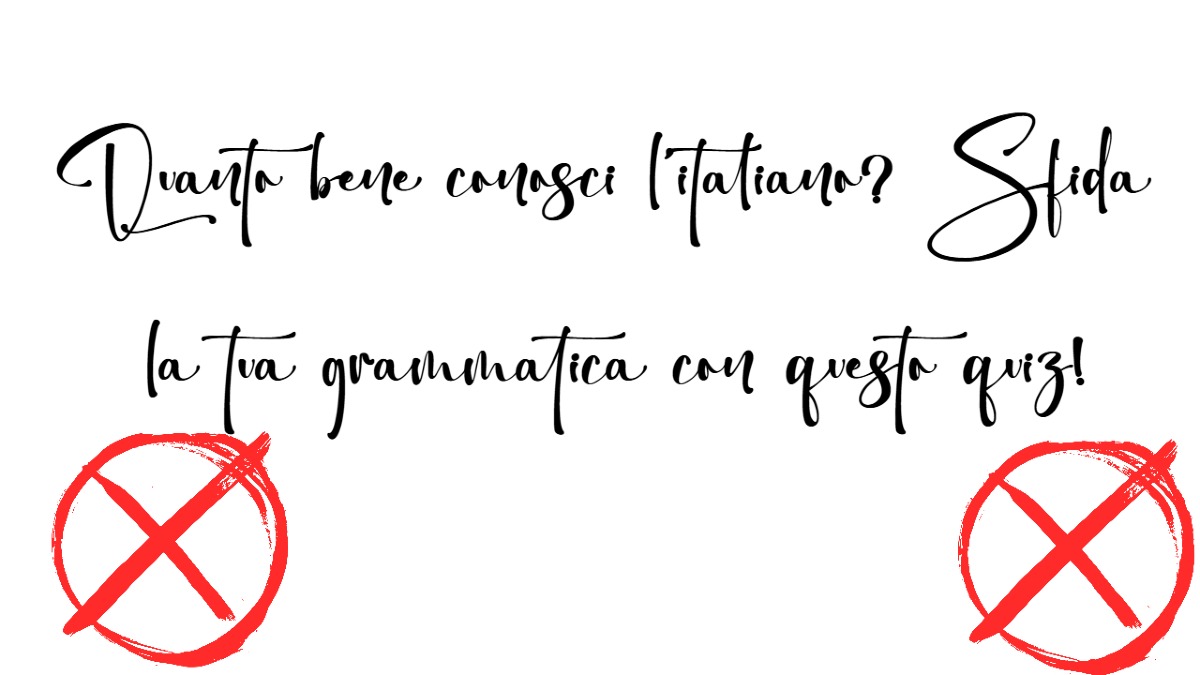 Quanto bene conosci l'italiano? Sfida
la tua grammatica con questo quiz!